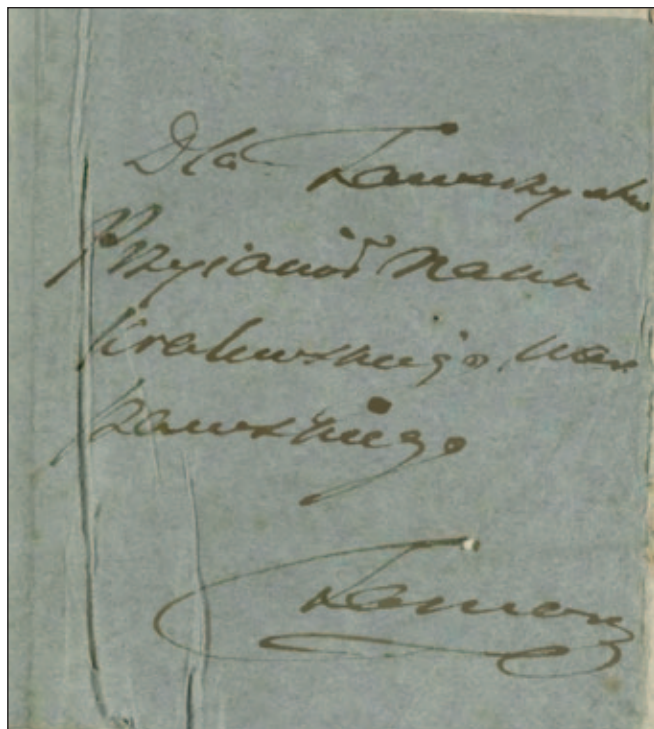 Dla Towarzystw
Przyiaciół Nauk
Krolewskiego War
szawskiego